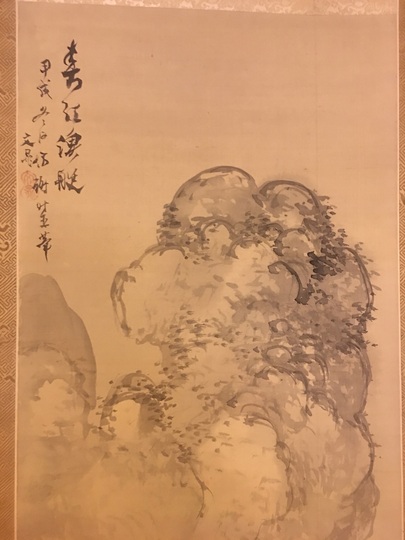 春江漁艇
甲戌冬日仿梅筆
文晁